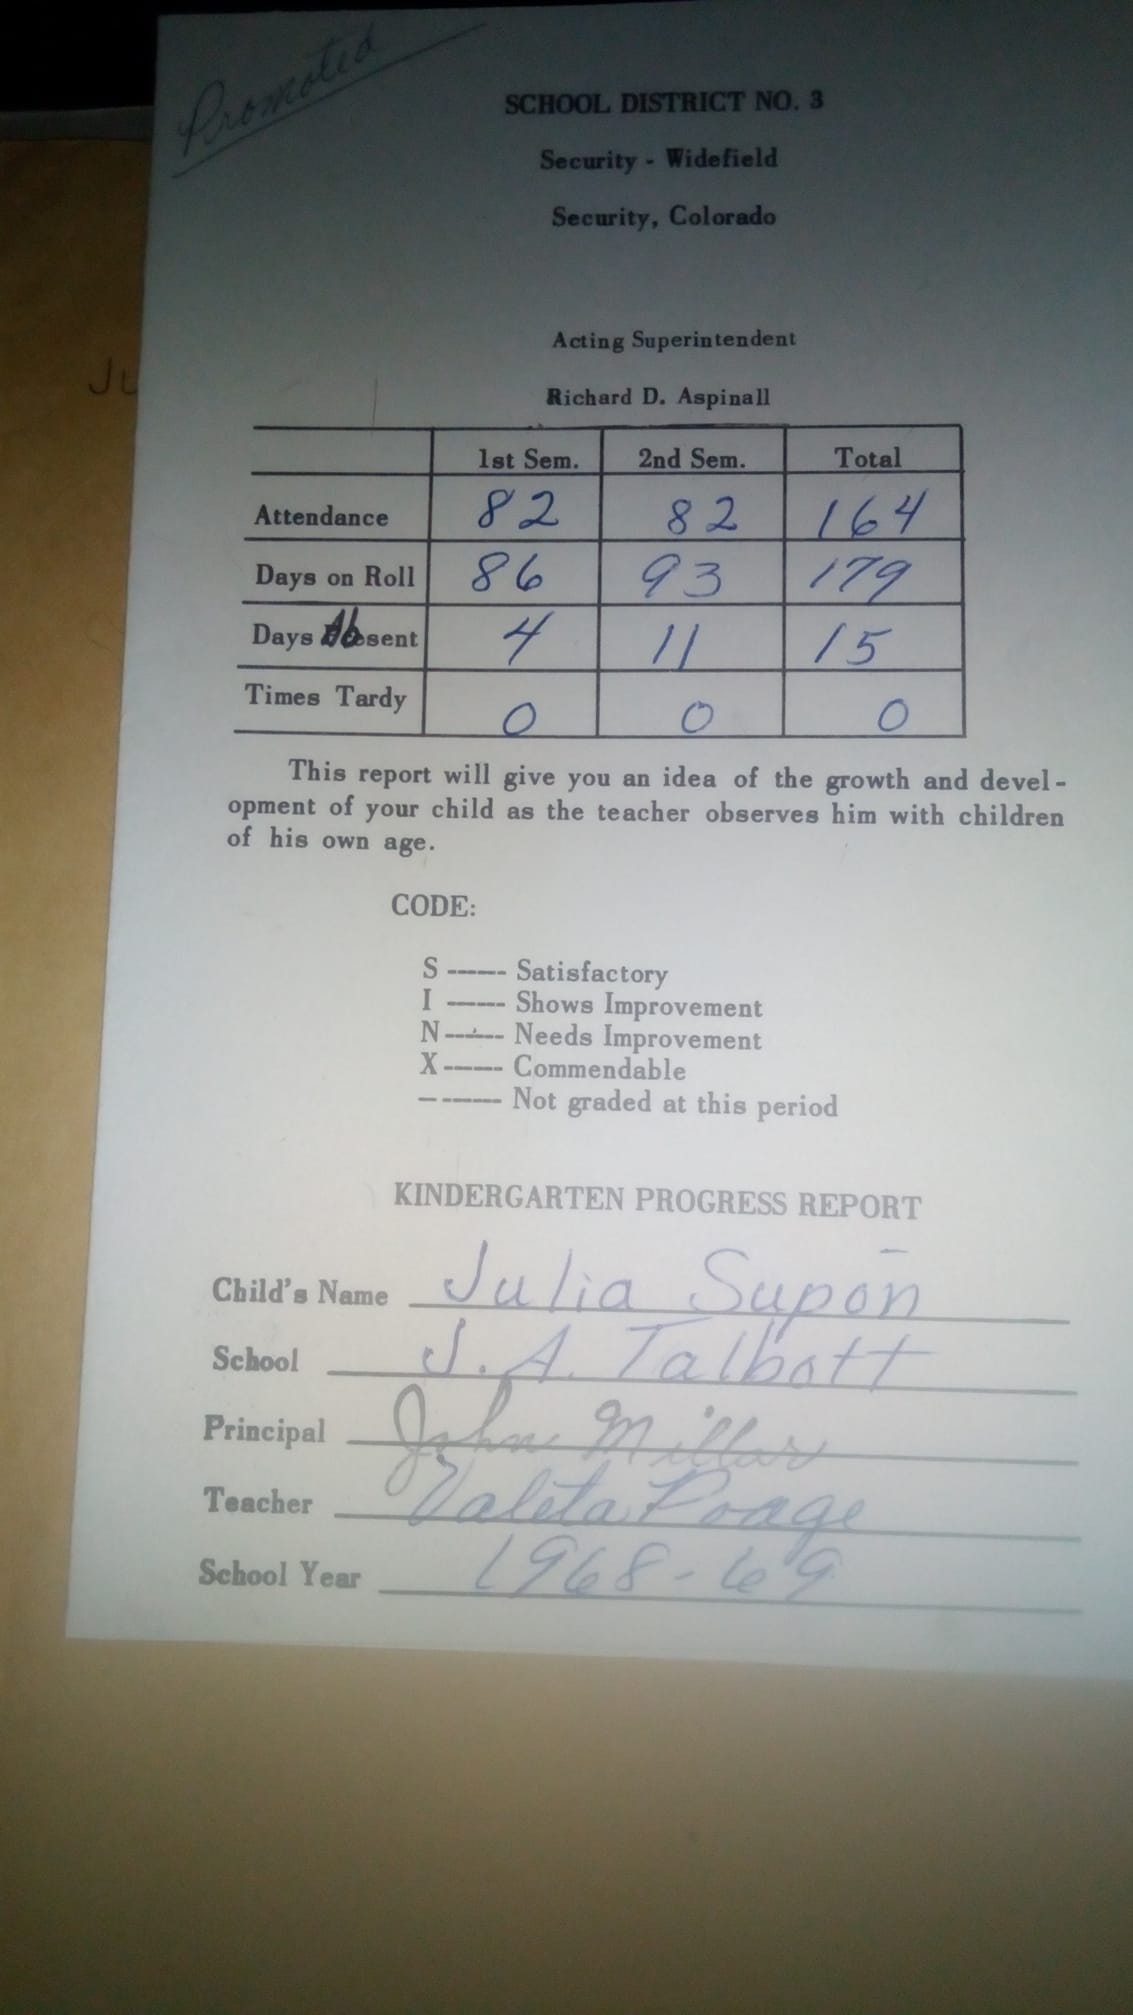 Promoted
SCHOOL DISTRICT NO. 3
Security - Widefield
Security, Colorado
Acting Superintendent
Richard D. Aspinall
1st Sem. 2nd Sem. Total
Attendance 82 82 164
Days on Roll 86 93 179
Days Absent 4 11 15
Times Tardy 0 0 0
This report will give you an idea of the growth and devel-
opment of your child as the teacher observes him with children
of his own age.
CODE:
S ------ Satisfactory
I ------ Shows Improvement
N------ Needs Improvement
X------ Commendable
------- Not graded at this period
KINDERGARTEN PROGRESS REPORT
Child's Name Julia Supōn
School J. A. Talbott
Principal John Millar
Teacher Valeta Poage
School Year 1968-69